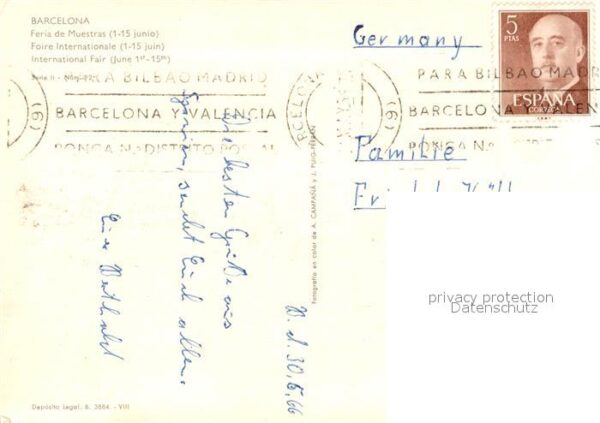 BARCELONA
Feria de Muestras (1-15 junio)
Foire Internationale (1-15 juin)
International Fair (June 1st-15th)
Serie II - Núm.
PARA BILBAO MADRID
BARCELONA Y VALENCIA
PONGA N.º DISTRITO POSTAL
(6)
BARCELONA
(6)
PARA BILBAO MADR
BARCELONA VALEN
PONGA N.º
5
PTAS
ESPAÑA
CORREOS
Germany
Familie
Die besten Grüße aus
Spanien, sendet Euch allen.
Euer
D. d. 30.5.66
Fotografía en color de A. CAMPAÑÁ y J. PUIG-FERRÁN
Depósito legal: B. 3884. - VIII
privacy protection
Datenschutz